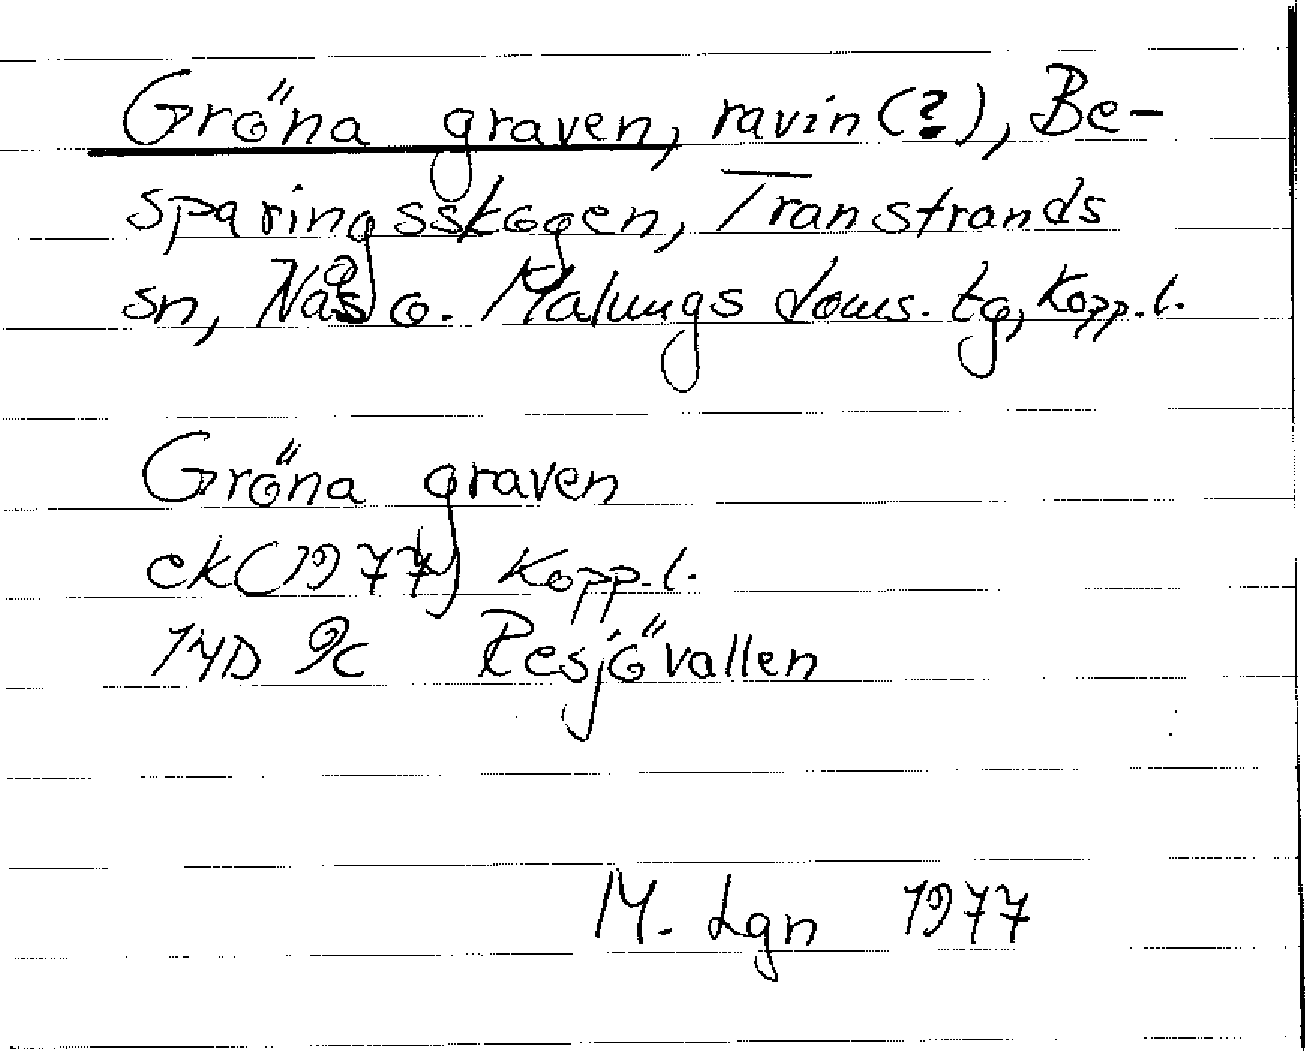 Gröna graven, ravin(?), Be-
sparingsskogen, Transtrands
sn, Nås o. Malungs doms. tg, Kopp. l.
Gröna graven
ek(1977) Kopp. l.
14D 9c Resjövallen
M. Lgn 1977